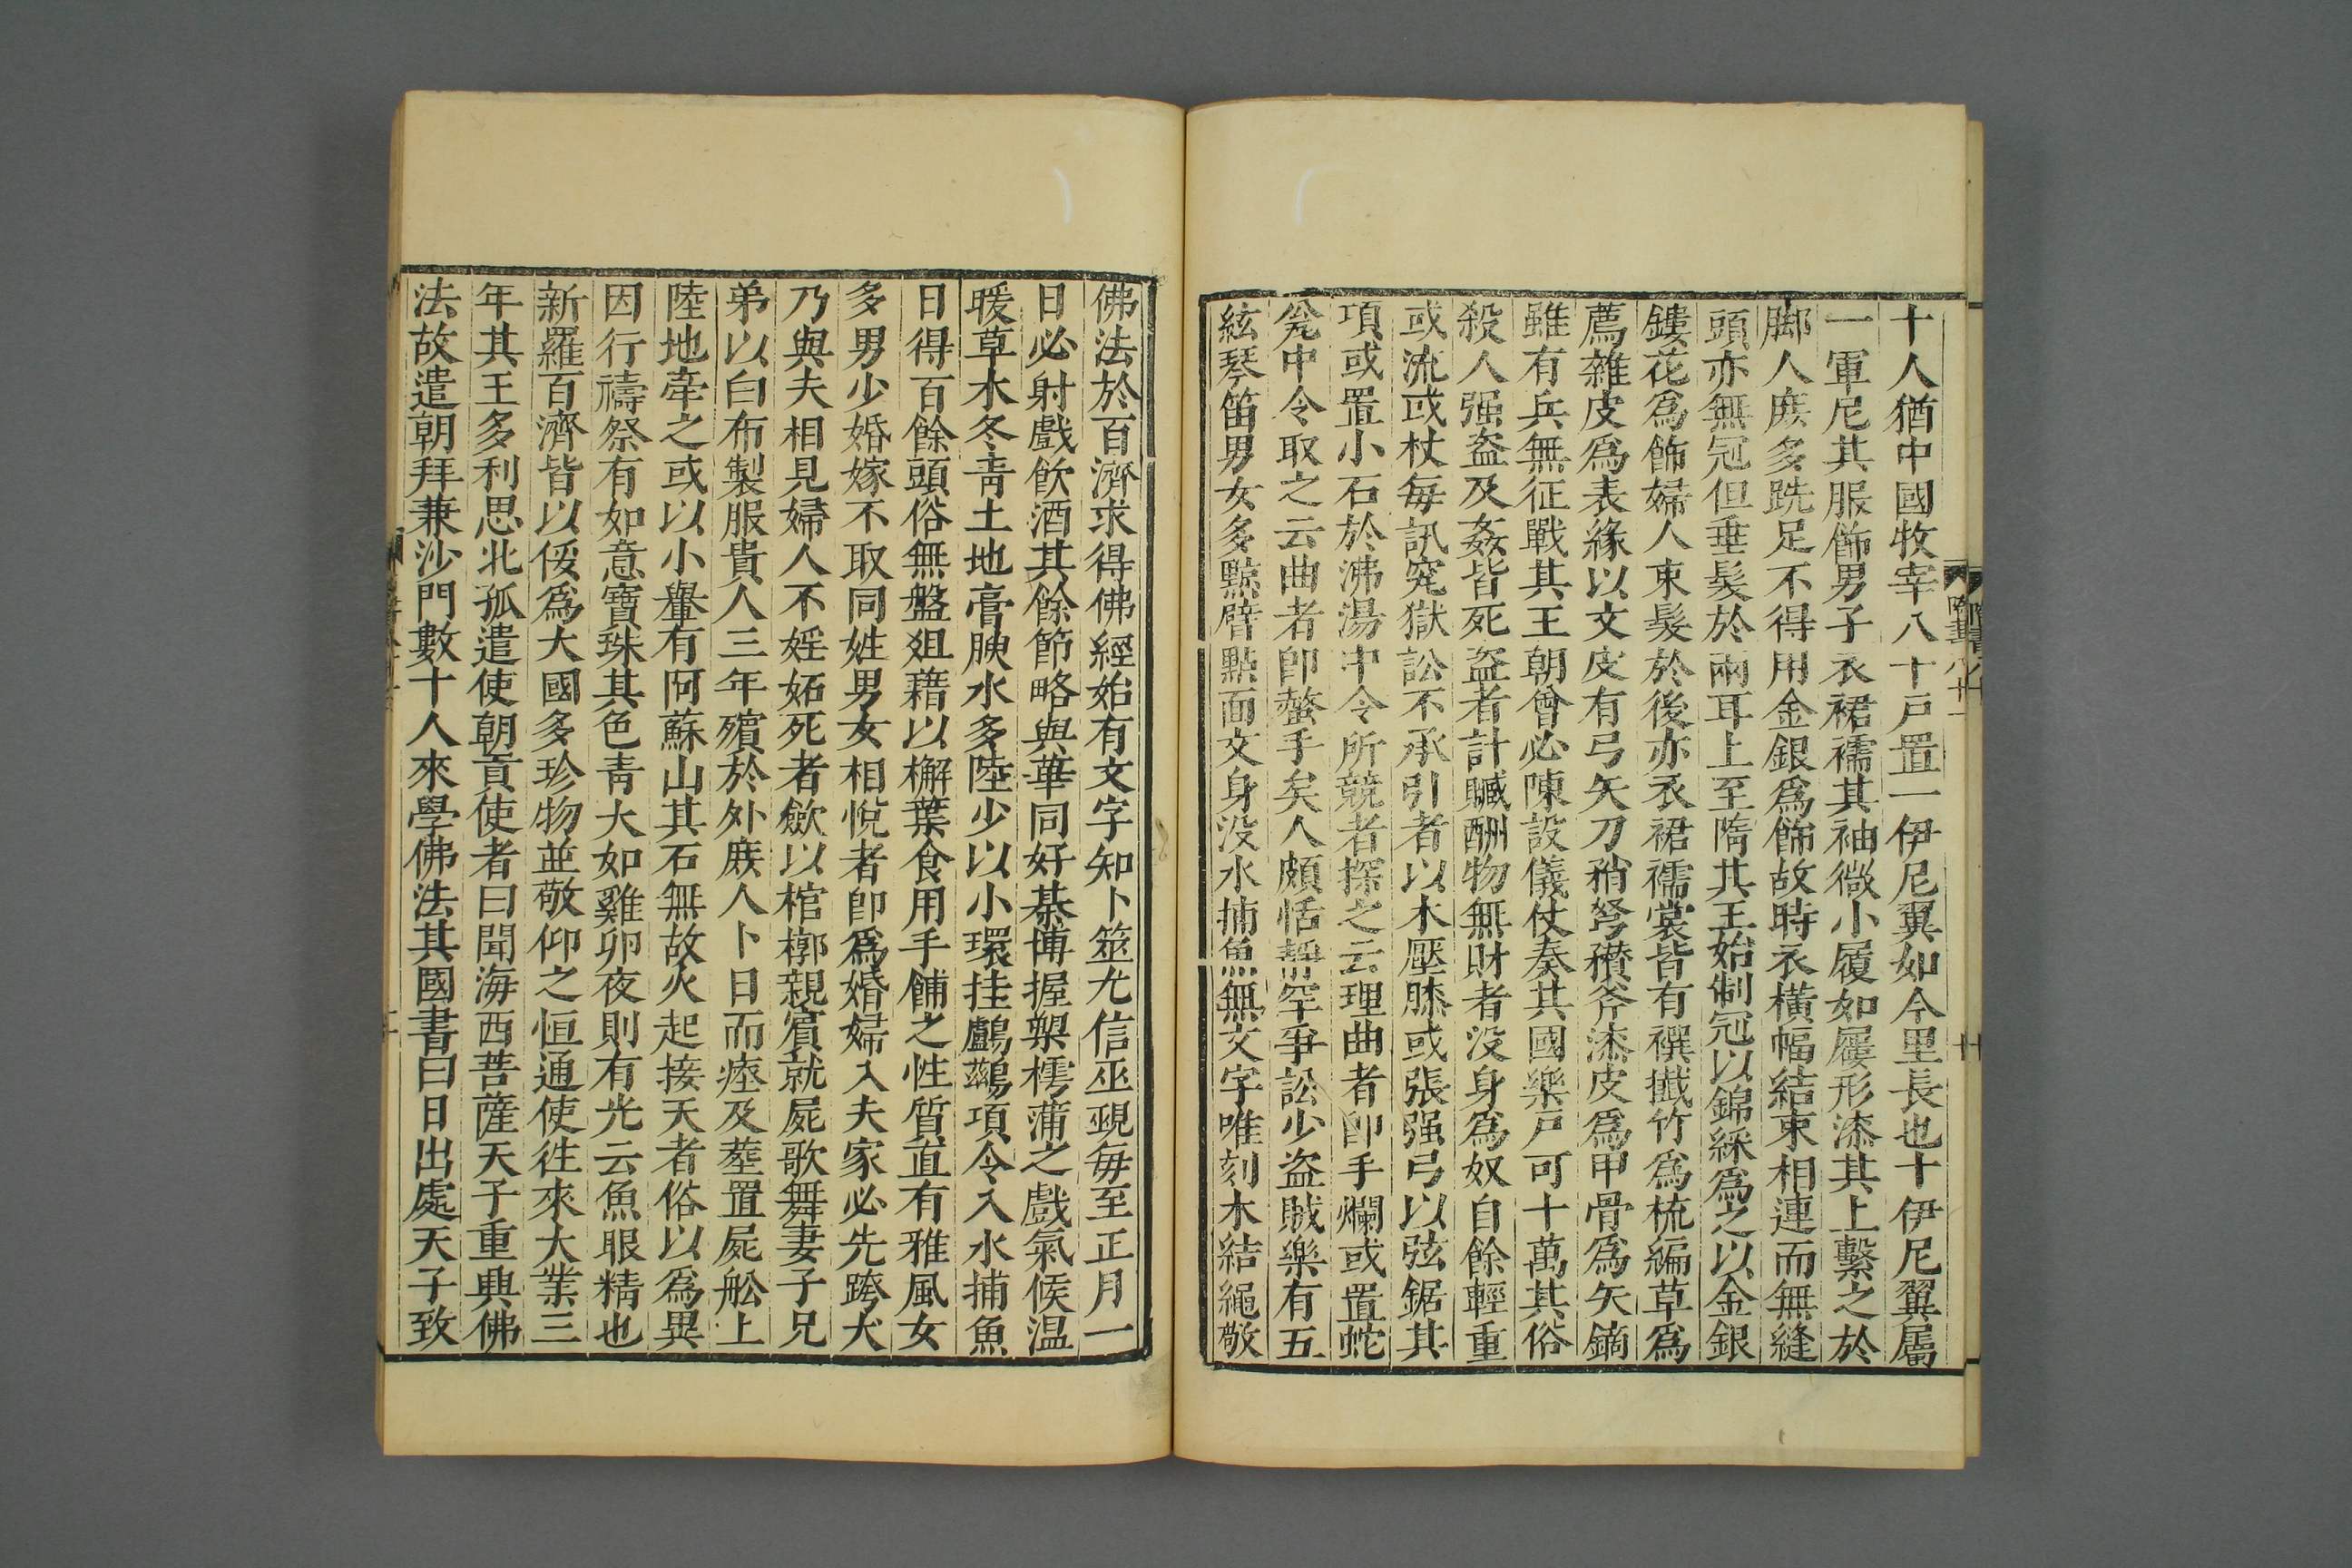 十人猶中國牧宰八十戸置一伊尼翼如今里長也十伊尼翼屬
一軍尼其服飾男子衣裙襦其袖微小履如屨形漆其上繫之於
脚人庶多跣足不得用金銀爲飾故時衣横幅結束相連而無縫
頭亦無冠但垂髮於兩耳上至隋其王始制冠以錦綵爲之以金銀
鏤花爲飾婦人束髮於後亦衣裙襦裳皆有襈攕竹爲梳編草爲
薦雜皮爲表緣以文皮有弓矢刀矟弩䂎斧漆皮爲甲骨爲矢鏑
雖有兵無征戰其王朝會必陳設儀仗奏其國樂戸可十萬其俗
殺人强盗及姦皆死盗者計贓酬物無財者没身爲奴自餘輕重
或流或杖每訊究獄訟不承引者以木壓膝或張强弓以弦鋸其
項或置小石於沸湯中令所競者探之云理曲者卽手爛或置蛇
瓮中令取之云曲者卽螫手矣人頗恬靜罕爭訟少盗賊樂有五
絃琴笛男女多黥臂點面文身没水捕魚無文字唯刻木結繩敬
隋書八十一
佛法於百濟求得佛經始有文字知卜筮尤信巫覡每至正月一
日必射戲飲酒其餘節略與華同好棊博握槊樗蒲之戲氣候温
暖草木冬青土地膏腴水多陸少以小環挂鸕鷀項令入水捕魚
日得百餘頭俗無盤俎藉以檞葉食用手餔之性質直有雅風女
多男少婚嫁不取同姓男女相悅者卽爲婚婦入夫家必先跨犬
乃與夫相見婦人不婬妬死者斂以棺槨親賓就屍歌舞妻子兄
弟以白布製服貴人三年殯於外庶人卜日而瘞及葬置屍舩上
陸地牽之或以小轝有阿蘇山其石無故火起接天者俗以爲異
因行禱祭有如意寶珠其色青大如雞卵夜則有光云魚眼精也
新羅百濟皆以倭爲大國多珍物並敬仰之恒通使往來大業三
年其王多利思北孤遣使朝貢使者曰聞海西菩薩天子重興佛
法故遣朝拜兼沙門數十人來學佛法其國書曰日出處天子致